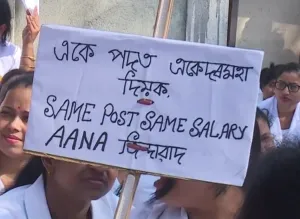 একে পদত একেদৰমহা
দিয়ক.
SAME POST SAME SALARY
AANA জিন্দাবাদ